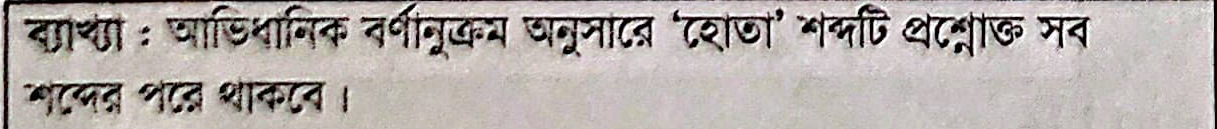 ব্যাখ্যা : আভিধানিক বর্ণানুক্রম অনুসারে ‘হোতা’ শব্দটি প্রশ্নোক্ত সব
শব্দের পরে থাকবে।